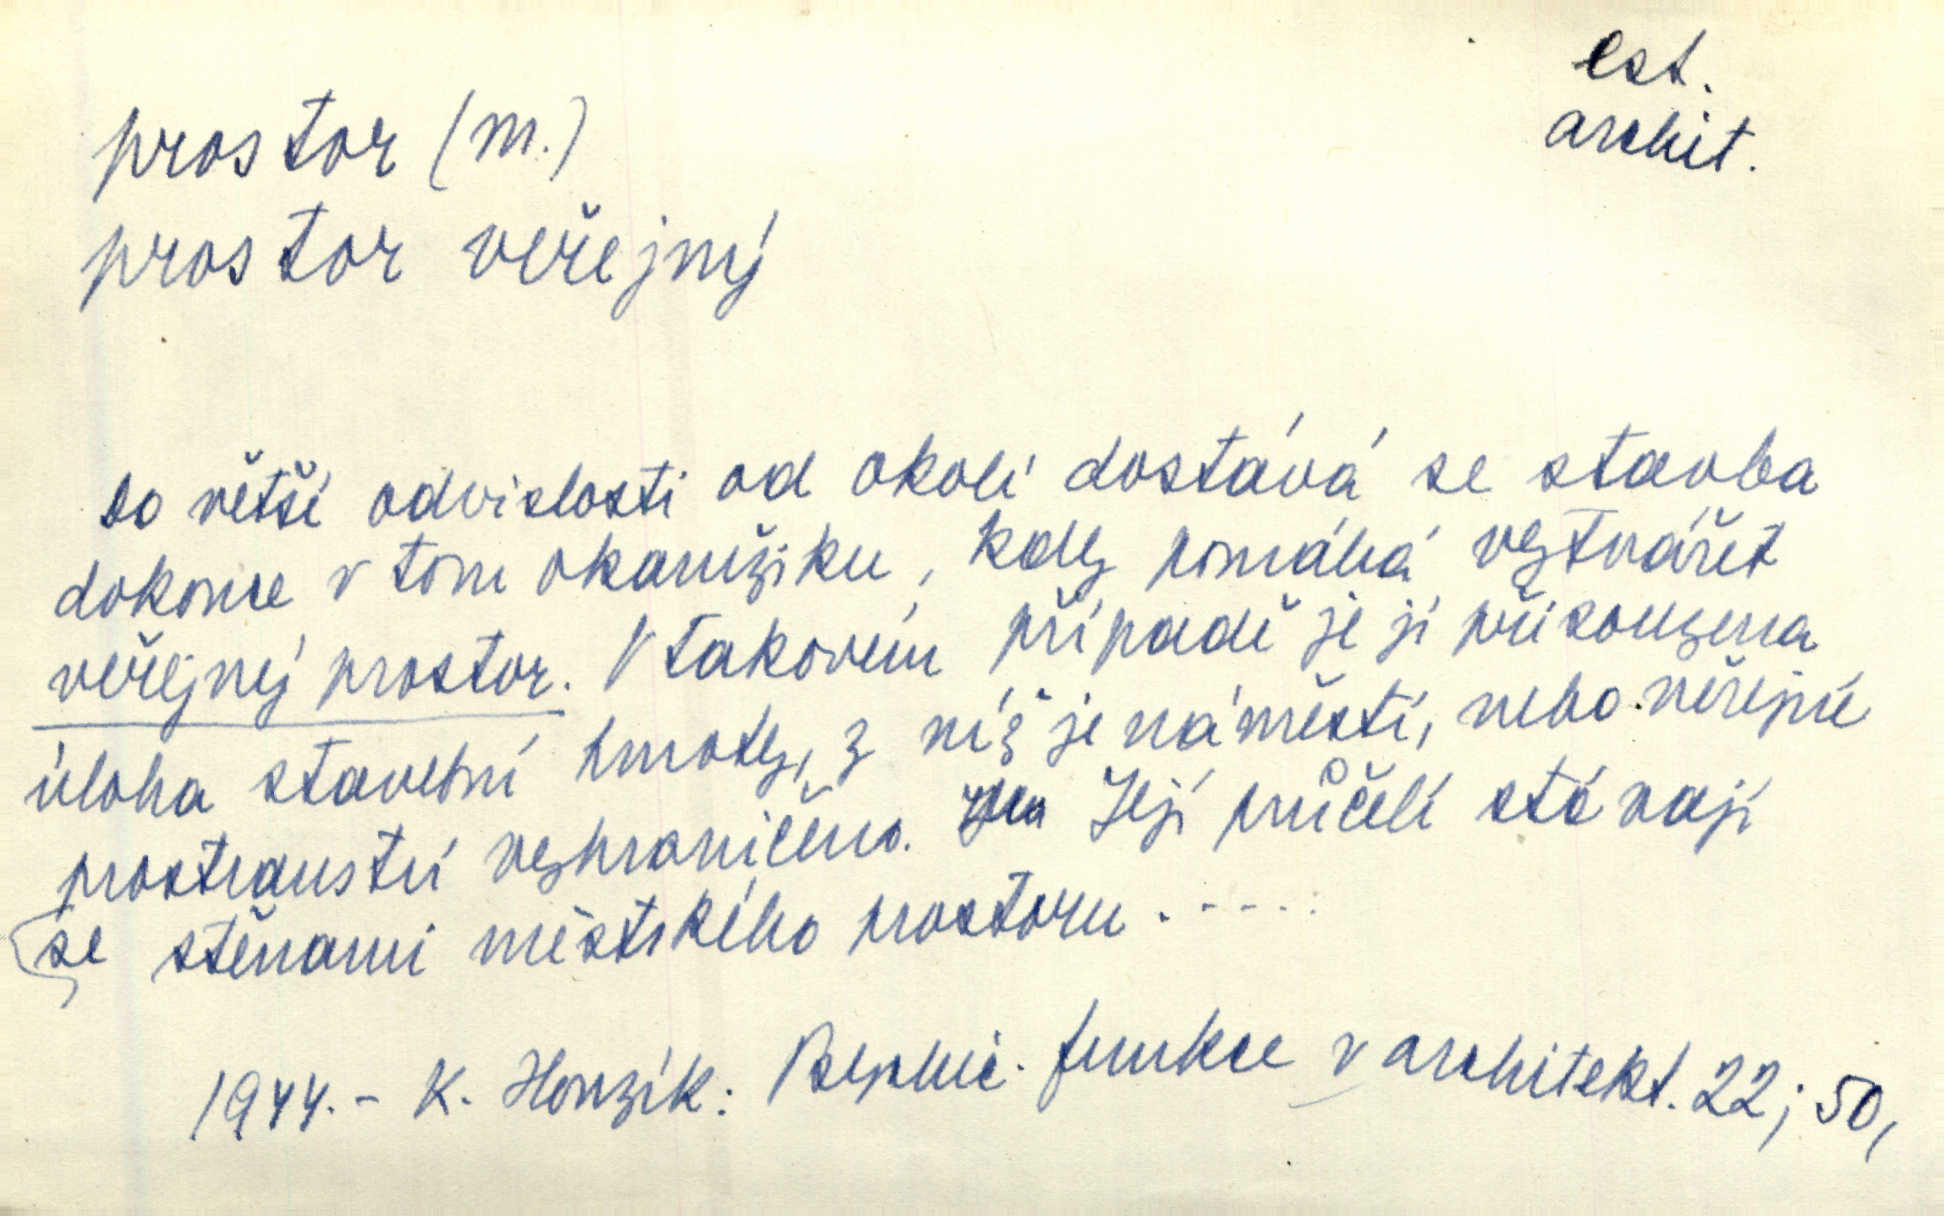 est.
archit.
prostor (m.)
prostor veřejný
do větší odvislosti od okolí dostává se stavba
dokonce v tom okamžiku, kdy pomáhá vytvářet
veřejný prostor. V takovém případě je jí přisouzena
úloha stavební hmoty, z níž je náměstí, nebo veřejné
prostranství vyhraničeno. Její průčelí stávají
se stěnami městského prostoru.----:
1944.- K. Honzík: Psychic. funkce v architekt. 22; 50,